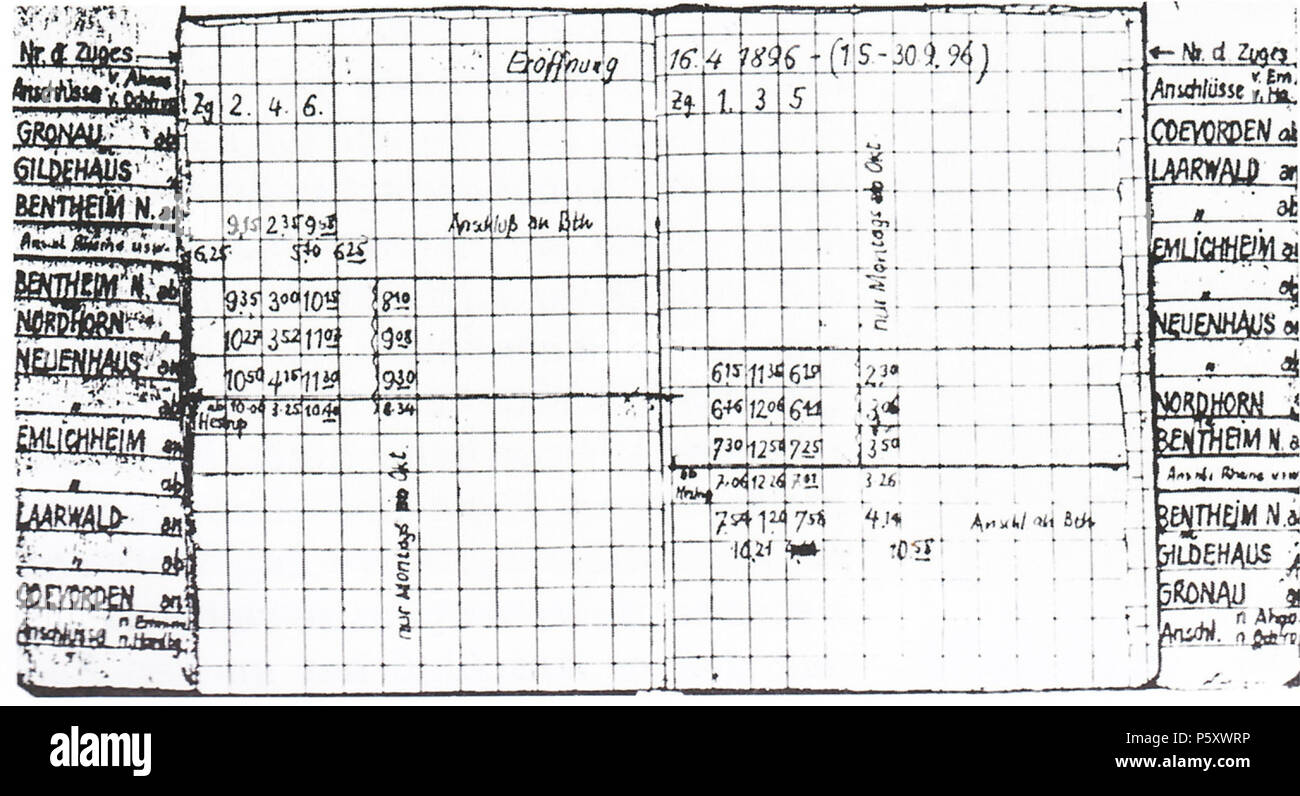 Nr. d. Zuges
Anschlüsse v. Ahaus
GRONAU ab
GILDEHAUS
BENTHEIM N. an
Anschl. Rheine usw.
BENTHEIM N. ab
NORDHORN "
NEUENHAUS an
" ab
EMLICHHEIM an
" ab
LAARWALD an
" ab
COEVORDEN an
Anschlüsse n. Emmen
n. Hardbg.
Eröffnung
Zg 2. 4. 6.
9 15 2 35 9 55 Anschluß an Bth
6.25 5 40 6 25
9 35 3 00 10 15 8 10
10 27 3 52 11 07 9 08
10 50 4 15 11 30 9 30
ab 10.06 3.25 10.40 8.34
Hestrup
nur Montags ab Okt.
16.4 1896 - (1.5.-30.9.96)
Zg. 1. 3 5
nur Montags ab Okt
6 15 11 35 6 10 2.30
12 06
7 30 12 50 7 25 3 50
ab 7.06 12 26 7 01 3.26
7 54 1 20 7 58 4.14 Anschl an Bth
10.21 10 58
← Nr. d. Zuges
Anschlüsse v. Em.
v. Ha.
COEVORDEN ab
LAARWALD an
" ab
EMLICHHEIM an
" ab
NEUENHAUS an
" ab
NORDHORN
BENTHEIM N. a
Anschl. Rheine usw
BENTHEIM N. a
GILDEHAUS
GRONAU an
Anschl. n Ahau
n Ochtru
alamy
Image ID: P5XWRP
www.alamy.com